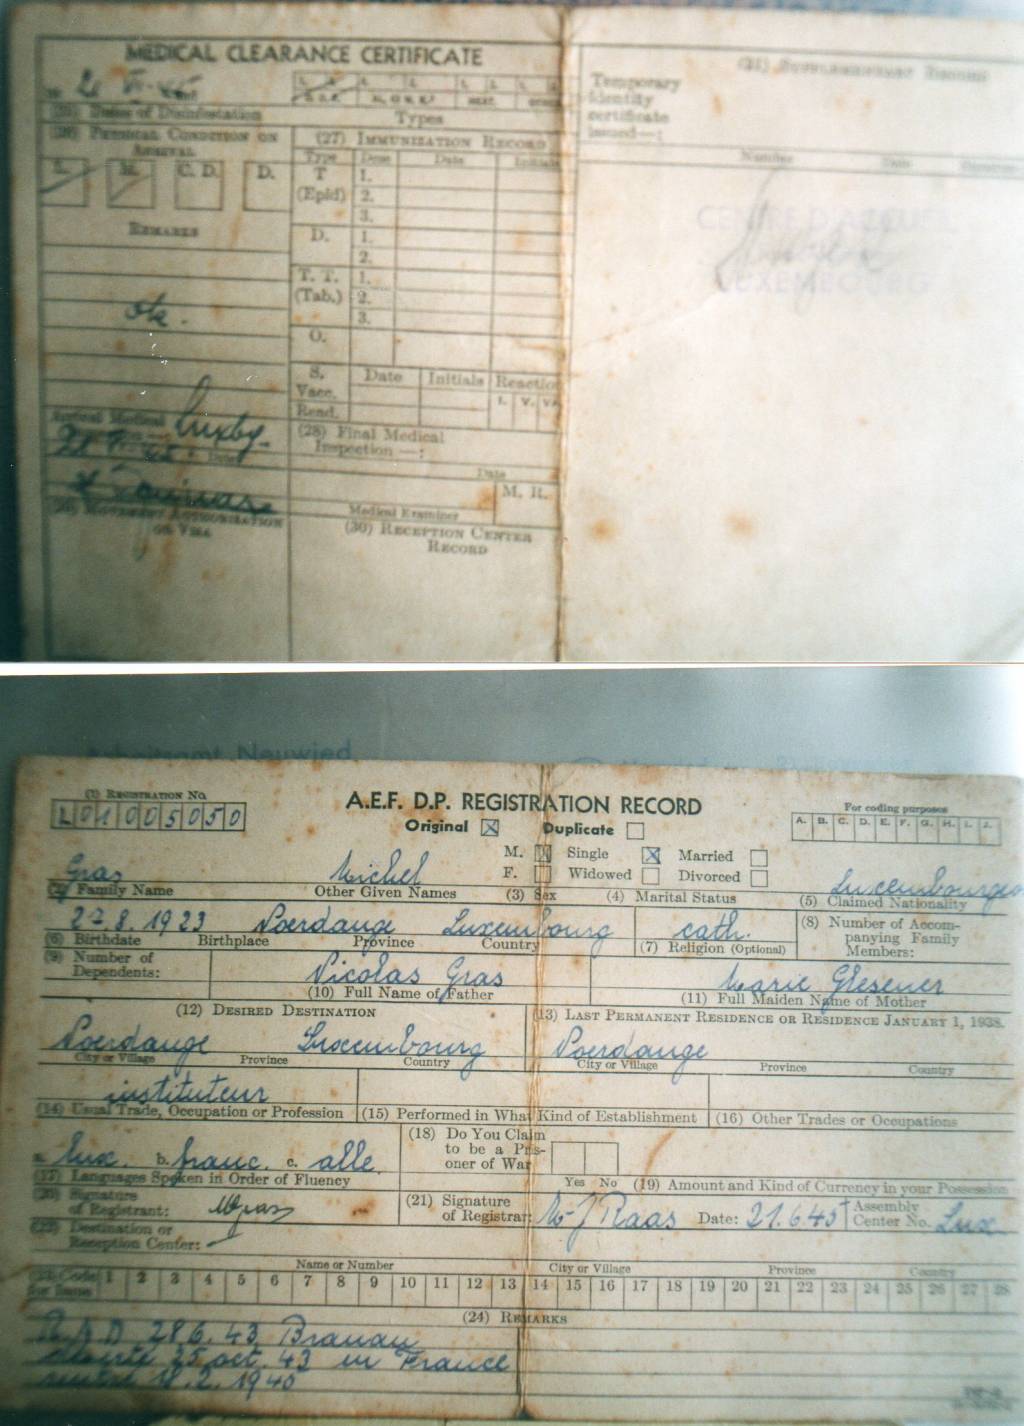 MEDICAL CLEARANCE CERTIFICATE
(31) SUPPLEMENTARY RECORD
Temporary
identity
certificate
issued—:
Number Date
(25) Dates of Disinfestation Types
(26) PHYSICAL CONDITION ON
ARRIVAL
(27) IMMUNIZATION RECORD
Type Dose Date Initials
L. M. C. D. D.
T
(Epid)
1.
2.
3.
REMARKS
D. 1.
2.
T. T.
(Tab.)
1.
2.
3.
ok.
O.
S.
Vacc.
Date Initials Reaction
I. V. Va
Read.
CENTRE D'ACCUEIL
LUXEMBOURG
Luxbg.
(28) Final Medical
Inspection —:
Date
M. R.
Medical Examiner
(29) MOVEMENT AUTHORIZATION
OR VISA
(30) RECEPTION CENTER
RECORD
Arbeitsamt Neuwied
(1) REGISTRATION NO.
L01005050
A.E.F. D.P. REGISTRATION RECORD
Original Duplicate
For coding purposes
A. B. C. D. E. F. G. H. I. J.
M. Single Married
F. Widowed Divorced
Gras Michel Luxembourgeo
(2) Family Name Other Given Names (3) Sex (4) Marital Status (5) Claimed Nationality
27.8.1923 Noerdange Luxembourg cath.
(6) Birthdate Birthplace Province Country (7) Religion (Optional)
(8) Number of Accom-
panying Family
Members:
(9) Number of
Dependents:
Nicolas Gras Marie Glesener
(10) Full Name of Father (11) Full Maiden Name of Mother
(12) DESIRED DESTINATION (13) LAST PERMANENT RESIDENCE OR RESIDENCE JANUARY 1, 1938.
Noerdange Luxembourg Noerdange
City or Village Province Country City or Village Province Country
instituteur
(14) Usual Trade, Occupation or Profession (15) Performed in What Kind of Establishment (16) Other Trades or Occupations
a. lux. b. franc. c. alle.
(17) Languages Spoken in Order of Fluency
(18) Do You Claim
to be a Pris-
oner of War
Yes No
(19) Amount and Kind of Currency in your Possession
(20) Signature
of Registrant: MGras
(21) Signature
of Registrar: M-J Raas Date: 21.6.45 Assembly
Center No. Lux.
(22) Destination or
Reception Center:
Name or Number City or Village Province Country
(23) Code
for Issue 1 2 3 4 5 6 7 8 9 10 11 12 13 14 15 16 17 18 19 20 21 22 23 24 25 26 27 28
(24) REMARKS
R.A.D. 28.6.43 Braunau
25 oct. 43 en France